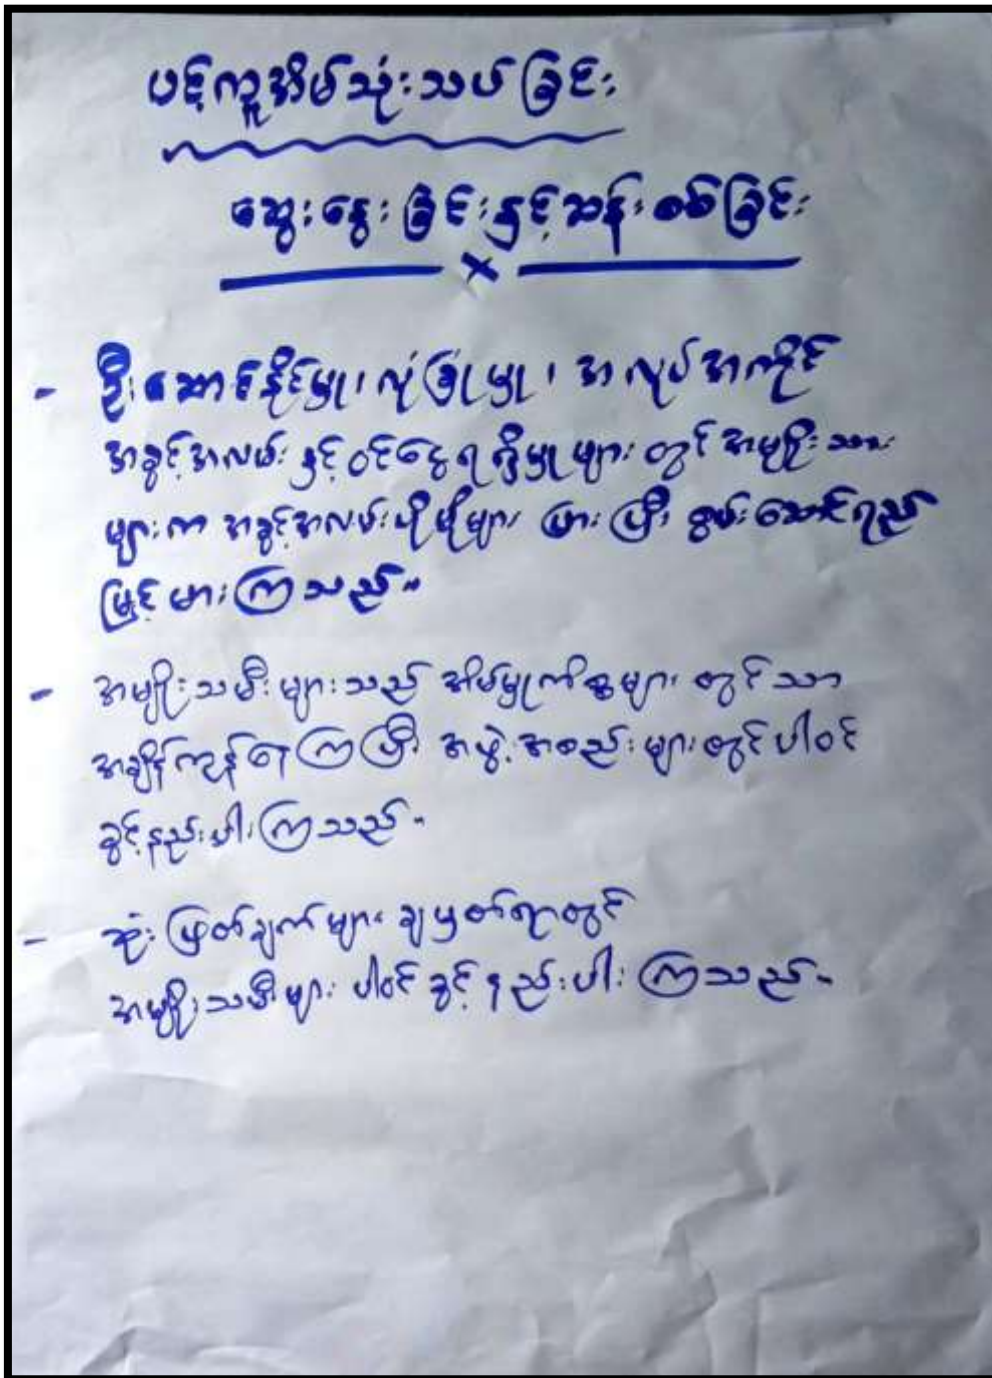 ပင့်ကူအိမ်သုံးသပ်ခြင်း
ဆွေးနွေးခြင်းနှင့်ဆန်းစစ်ခြင်း
- ဦးဆောင်နိုင်မှု၊ လုံခြုံမှု၊ အလုပ်အကိုင်
အခွင့်အလမ်းနှင့်ဝင်ငွေရရှိမှုများတွင် အမျိုးသား
များက အခွင့်အလမ်းပိုမိုများပြားပြီး စွမ်းဆောင်ရည်
မြင့်မားကြသည်။
- အမျိုးသမီးများသည် အိမ်မှုကိစ္စများတွင်သာ
အချိန်ကုန်နေကြပြီး အဖွဲ့အစည်းများတွင်ပါဝင်
ခွင့်နည်းပါးကြသည်။
- ဆုံးဖြတ်ချက်များ ချမှတ်ရာတွင်
အမျိုးသမီးများ ပါဝင်ခွင့်နည်းပါးကြသည်။